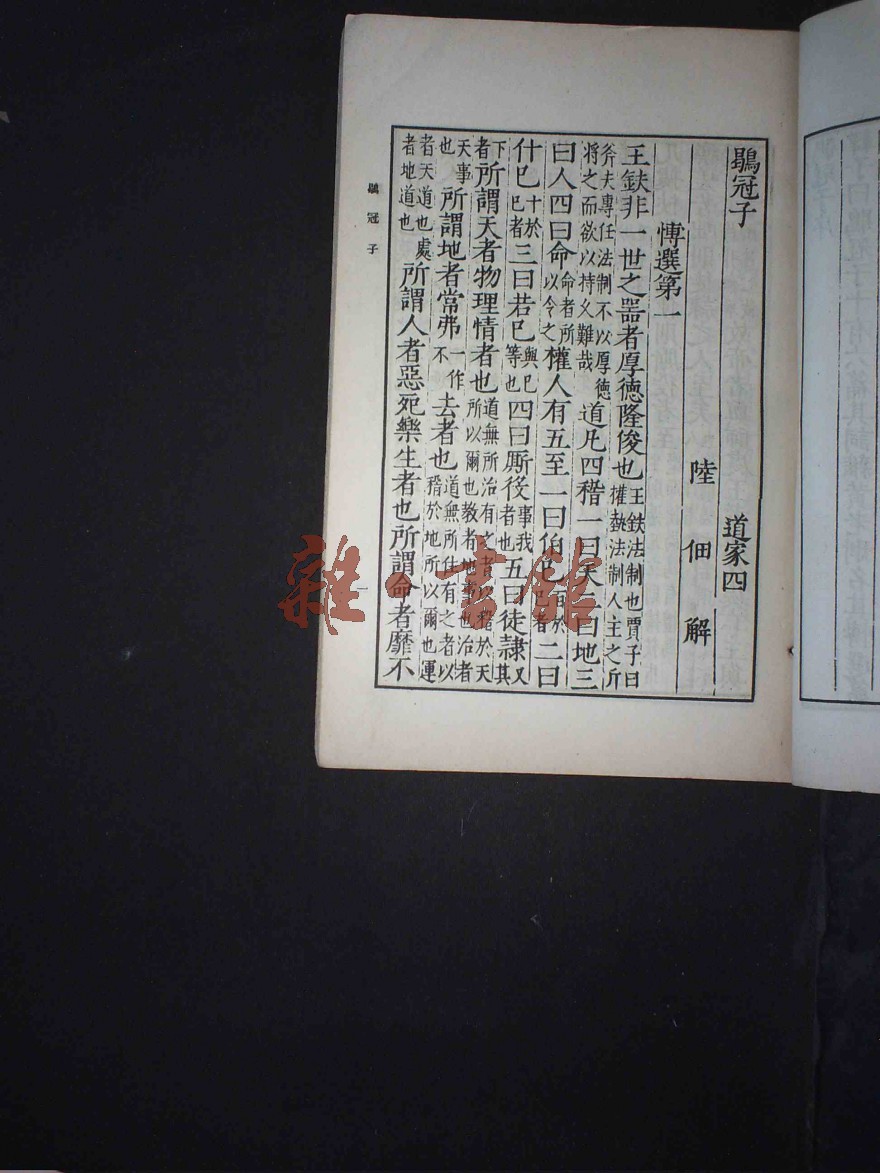 鶡冠子　道家四
陸佃解
博選第一
王鈇非一世之器者厚德隆俊也王鈇法制也賈子曰權埶法制人主之斤
斧夫專任法制不以厚德將之而欲以持久難哉道凡四稽一曰天二曰地三
曰人四曰命命者所以令之權人有五至一曰伯己百於己者二曰
什己十於己者三曰若己與己等也四曰厮役事我者也五曰徒隷又其下
者所謂天者物理情者也道無所治有之者以稽於天所以爾也教者地事也治者天事
也所謂地者常弗一作不去者也道無所住有之者以稽於地所以爾也運者天道也處
者地道也所謂人者惡死樂生者也所謂命者靡不
鶡冠子
一
雜·書館